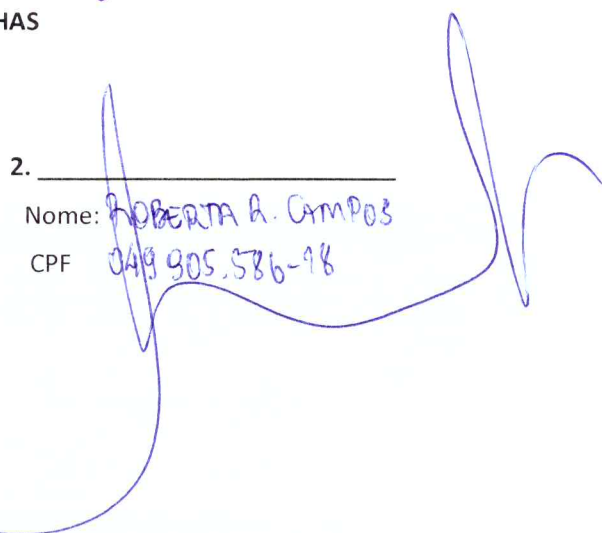 HAS
2.
Nome: ROBERTA R. CAMPOS
CPF 049 905.586-18